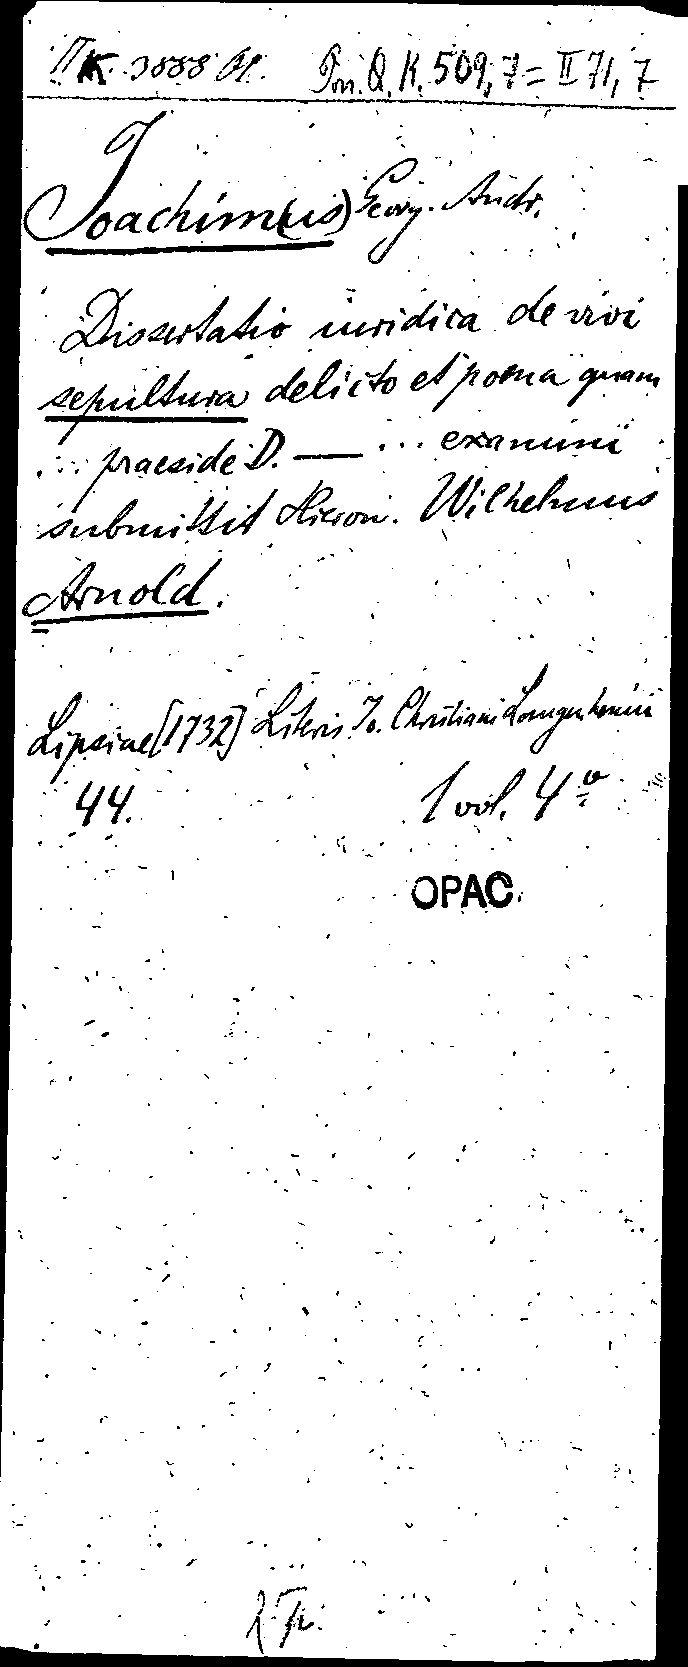 K. 3888 Pon. Q. K. 509, 7 = II 71, 7
Joachim(us) Georg. Andr.
Dissertatio iuridica de vivi
sepultura delicto et poena quam
... praeside D. — ... examini
submittit Hieron. Wilhelmus
Arnold.
Lipsiae [1732] Literis Io. Christiani Langenhemii
44. 1 vol. 4º
OPAC.